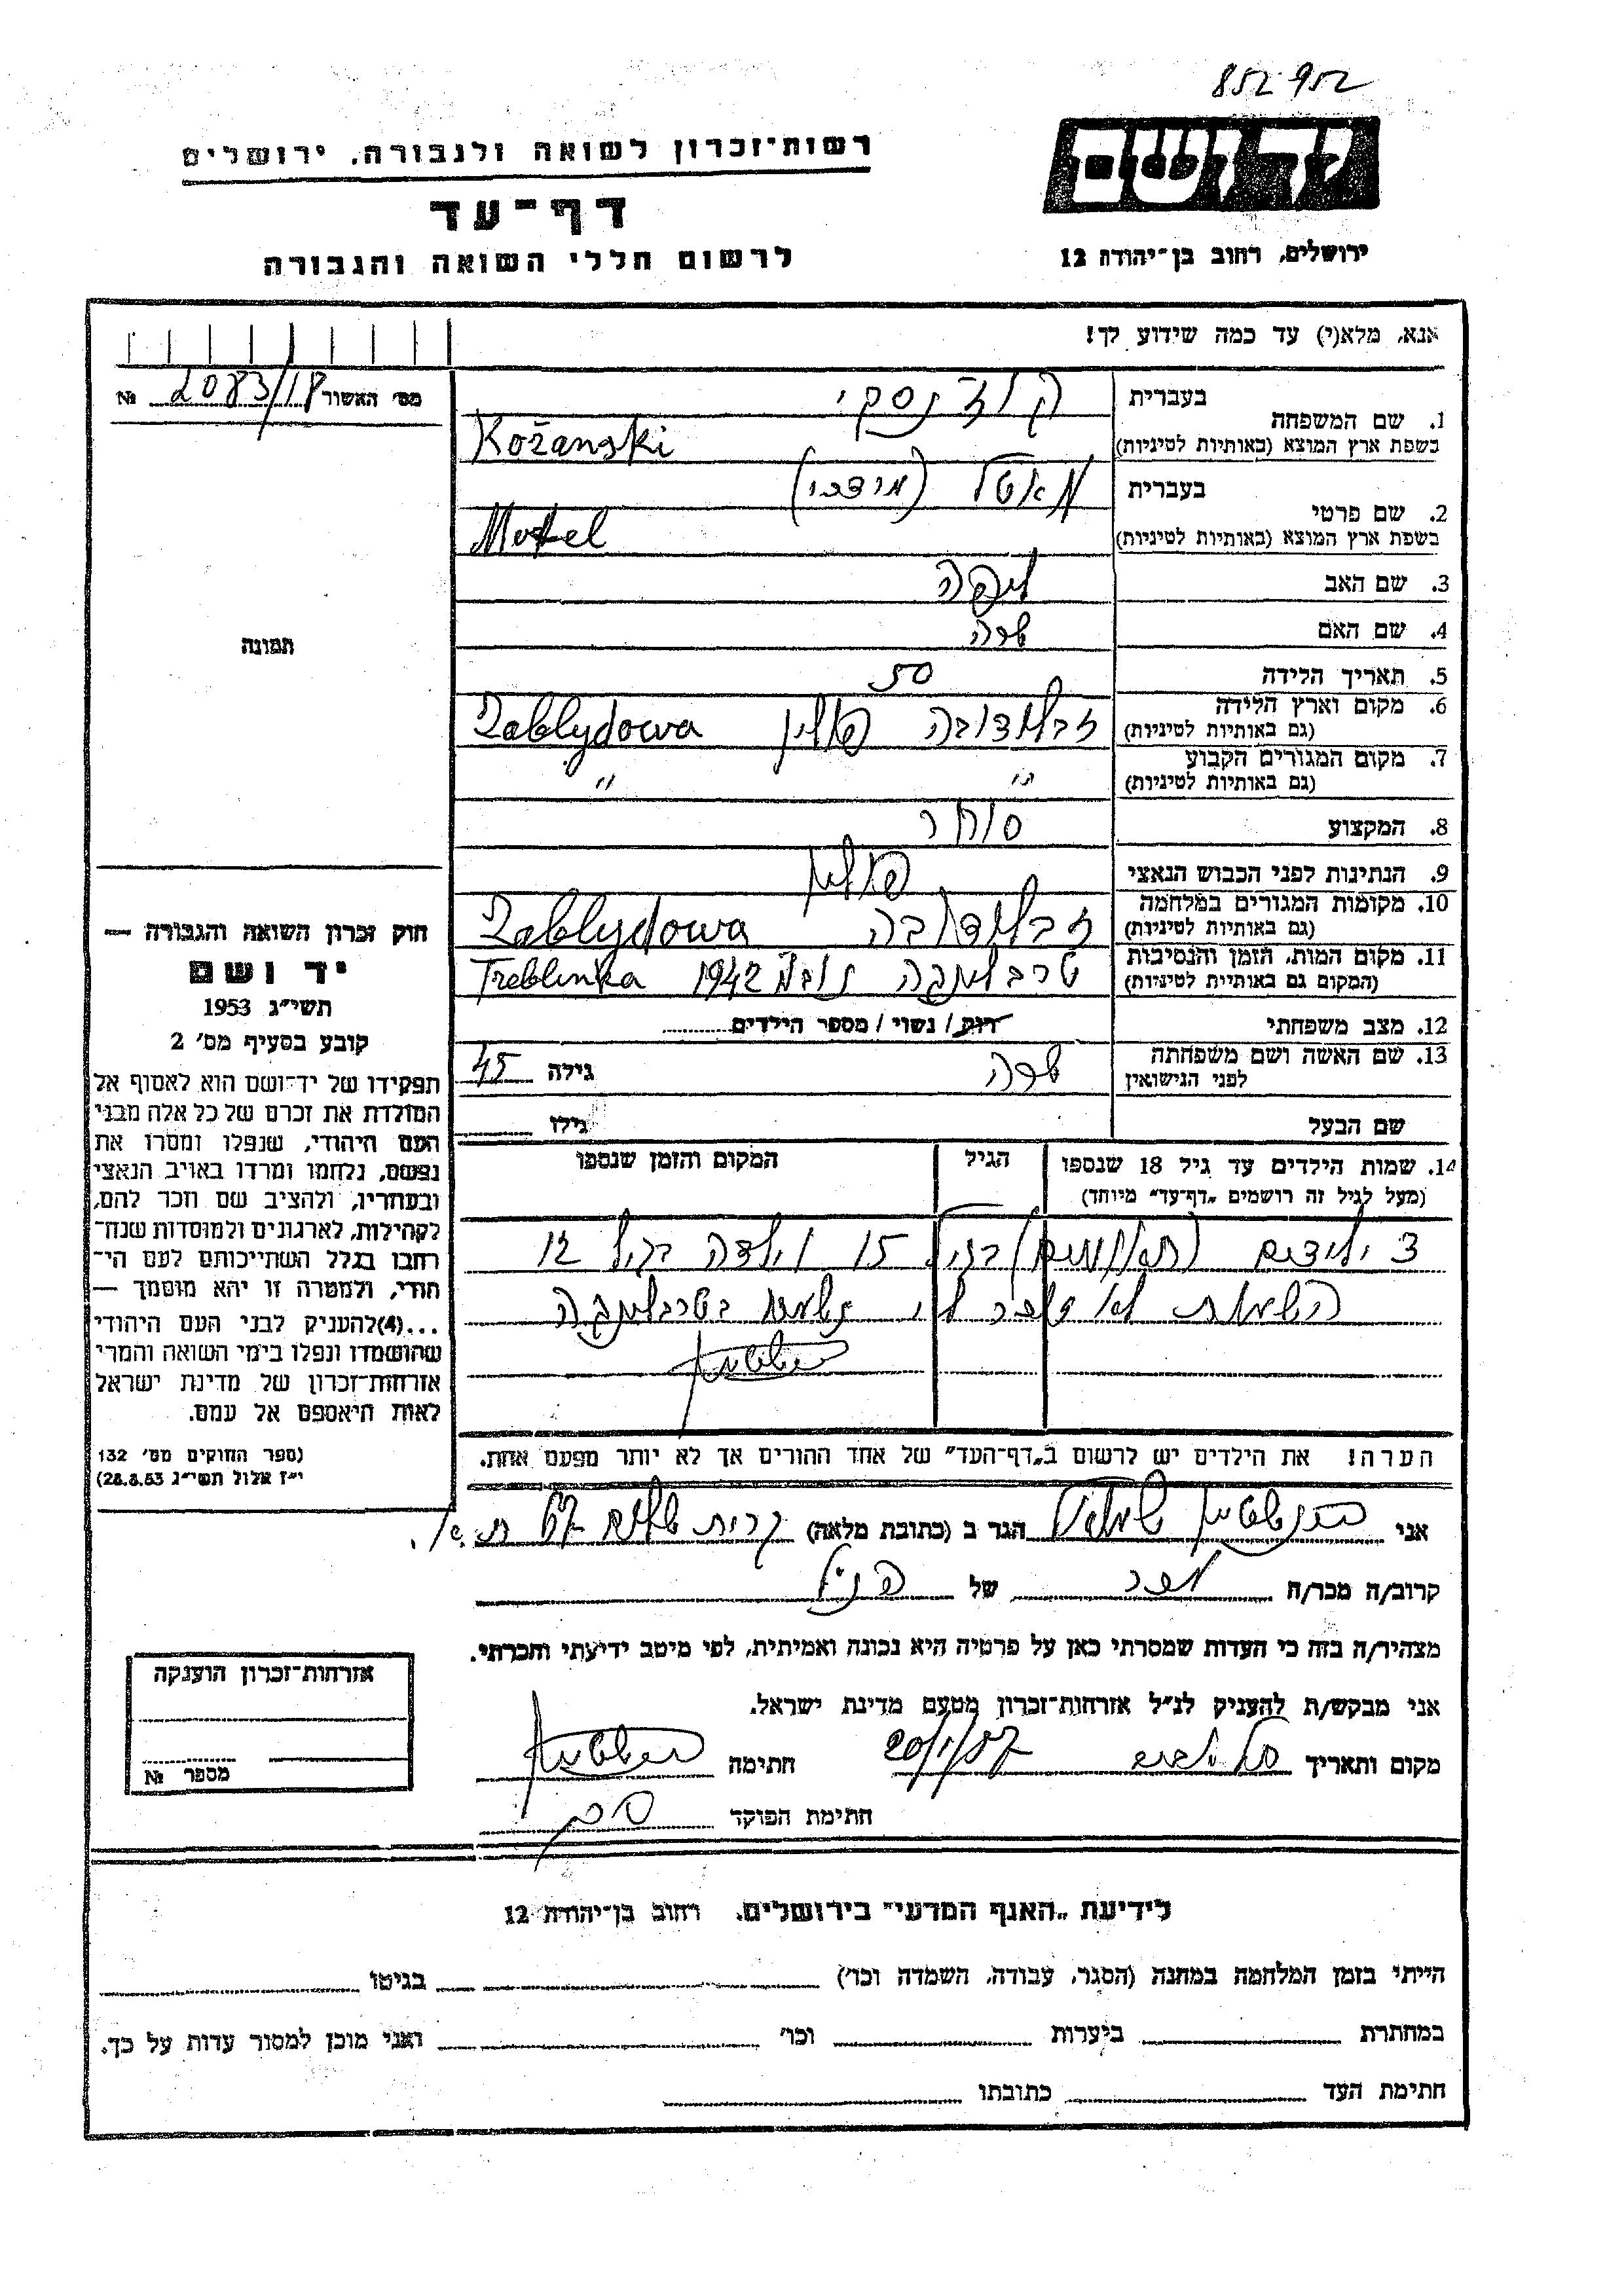 852 952
רשות־זכרון לשואה ולגבורה, ירושלים
יד ושם
דף־עד
לרשום חללי השואה והגבורה
ירושלים, רחוב בן־יהודה 12
אנא, מלא(י) עד כמה שידוע לך!
מס׳ האשור 2083/18 №
1. שם המשפחה
בעברית
בשפת ארץ המוצא (באותיות לטיניות) Kožanski
2. שם פרטי
בעברית מאטל (מרדכי)
בשפת ארץ המוצא (באותיות לטיניות) Motel
3. שם האב
4. שם האם שרה
5. תאריך הלידה 50
6. מקום וארץ הלידה
(גם באותיות לטיניות) זבלודובה פולין Zabludowa
7. מקום המגורים הקבוע
(גם באותיות לטיניות) " "
8. המקצוע סוחר
9. הנתינות לפני הכבוש הנאצי פולין
10. מקומות המגורים במלחמה
(גם באותיות לטיניות) זבלודובה Zabludowa
11. מקום המות, הזמן והנסיבות
(המקום גם באותיות לטיניות) טרבלינקה נוב׳ 1942 Treblinka
12. מצב משפחתי רווק / נשוי / מספר הילדים
13. שם האשה ושם משפחתה
לפני הנישואין שרה גילה 45
שם הבעל גילו
14. שמות הילדים עד גיל 18 שנספו
(מעל לגיל זה רושמים „דף־עד” מיוחד)
הגיל
המקום והזמן שנספו
3 ילידים (תאומים) בגיל 15 וילדה בגיל 12
השמות לא זכור לי נשמדו בטרבלינקה
הערה! את הילדים יש לרשום ב„דף־העד” של אחד ההורים אך לא יותר מפעם אחת.
תמונה
חוק זכרון השואה והגבורה —
יד ושם
תשי״ג 1953
קובע בסעיף מס׳ 2
תפקידו של יד־ושם הוא לאסוף אל
המולדת את זכרם של כל אלה מבני
העם היהודי, שנפלו ומסרו את
נפשם, נלחמו ומרדו באויב הנאצי
ובעוזריו, ולהציב שם וזכר להם,
לקהילות, לארגונים ולמוסדות שנח־
רבו בגלל השתייכותם לעם הי־
הודי, ולמטרה זו יהא מוסמך —
...(4) להעניק לבני העם היהודי
שהושמדו ונפלו בימי השואה והמרי
אזרחות־זכרון של מדינת ישראל
לאות היאספם אל עמם.
(ספר החוקים מס׳ 132
י״ז אלול תשי״ג 28.8.53)
אני שמואל הגר ב (כתובת מלאה) קרית שלום
קרוב/ה מכר/ה מכר של הנ״ל
מצהיר/ה בזה כי העדות שמסרתי כאן על פרטיה היא נכונה ואמיתית, לפי מיטב ידיעתי והכרתי.
אני מבקש/ת להעניק לנ״ל אזרחות־זכרון מטעם מדינת ישראל.
מקום ותאריך תל אביב 20/1/57 חתימה
חתימת הפוקד
אזרחות־זכרון הוענקה
מספר №
לידיעת „האגף המדעי” בירושלים, רחוב בן־יהודה 12
הייתי בזמן המלחמה במחנה (הסגר, עבודה, השמדה וכו׳) בגיטו
במחתרת ביערות וכו׳ ואני מוכן למסור עדות על כך.
חתימת העד כתובתו